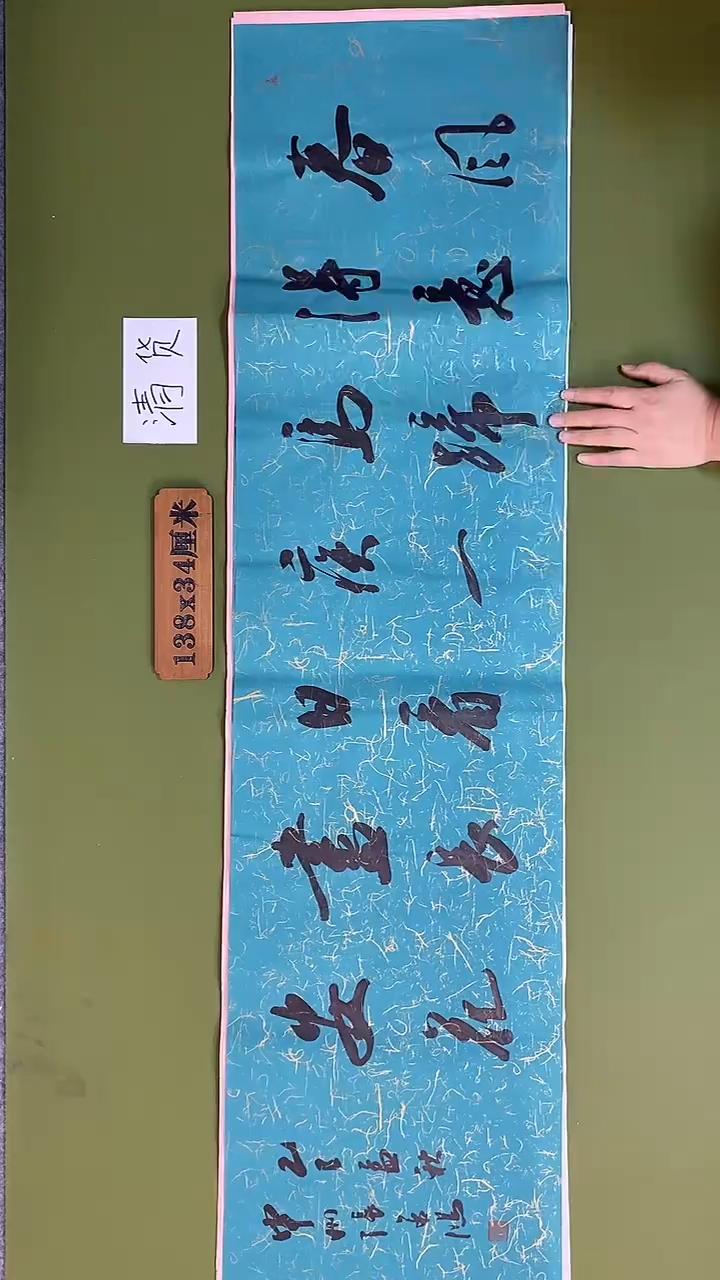 春风
得意
马蹄
疾一
日看
尽长
安花
乙巳孟秋
清货
138x34厘米